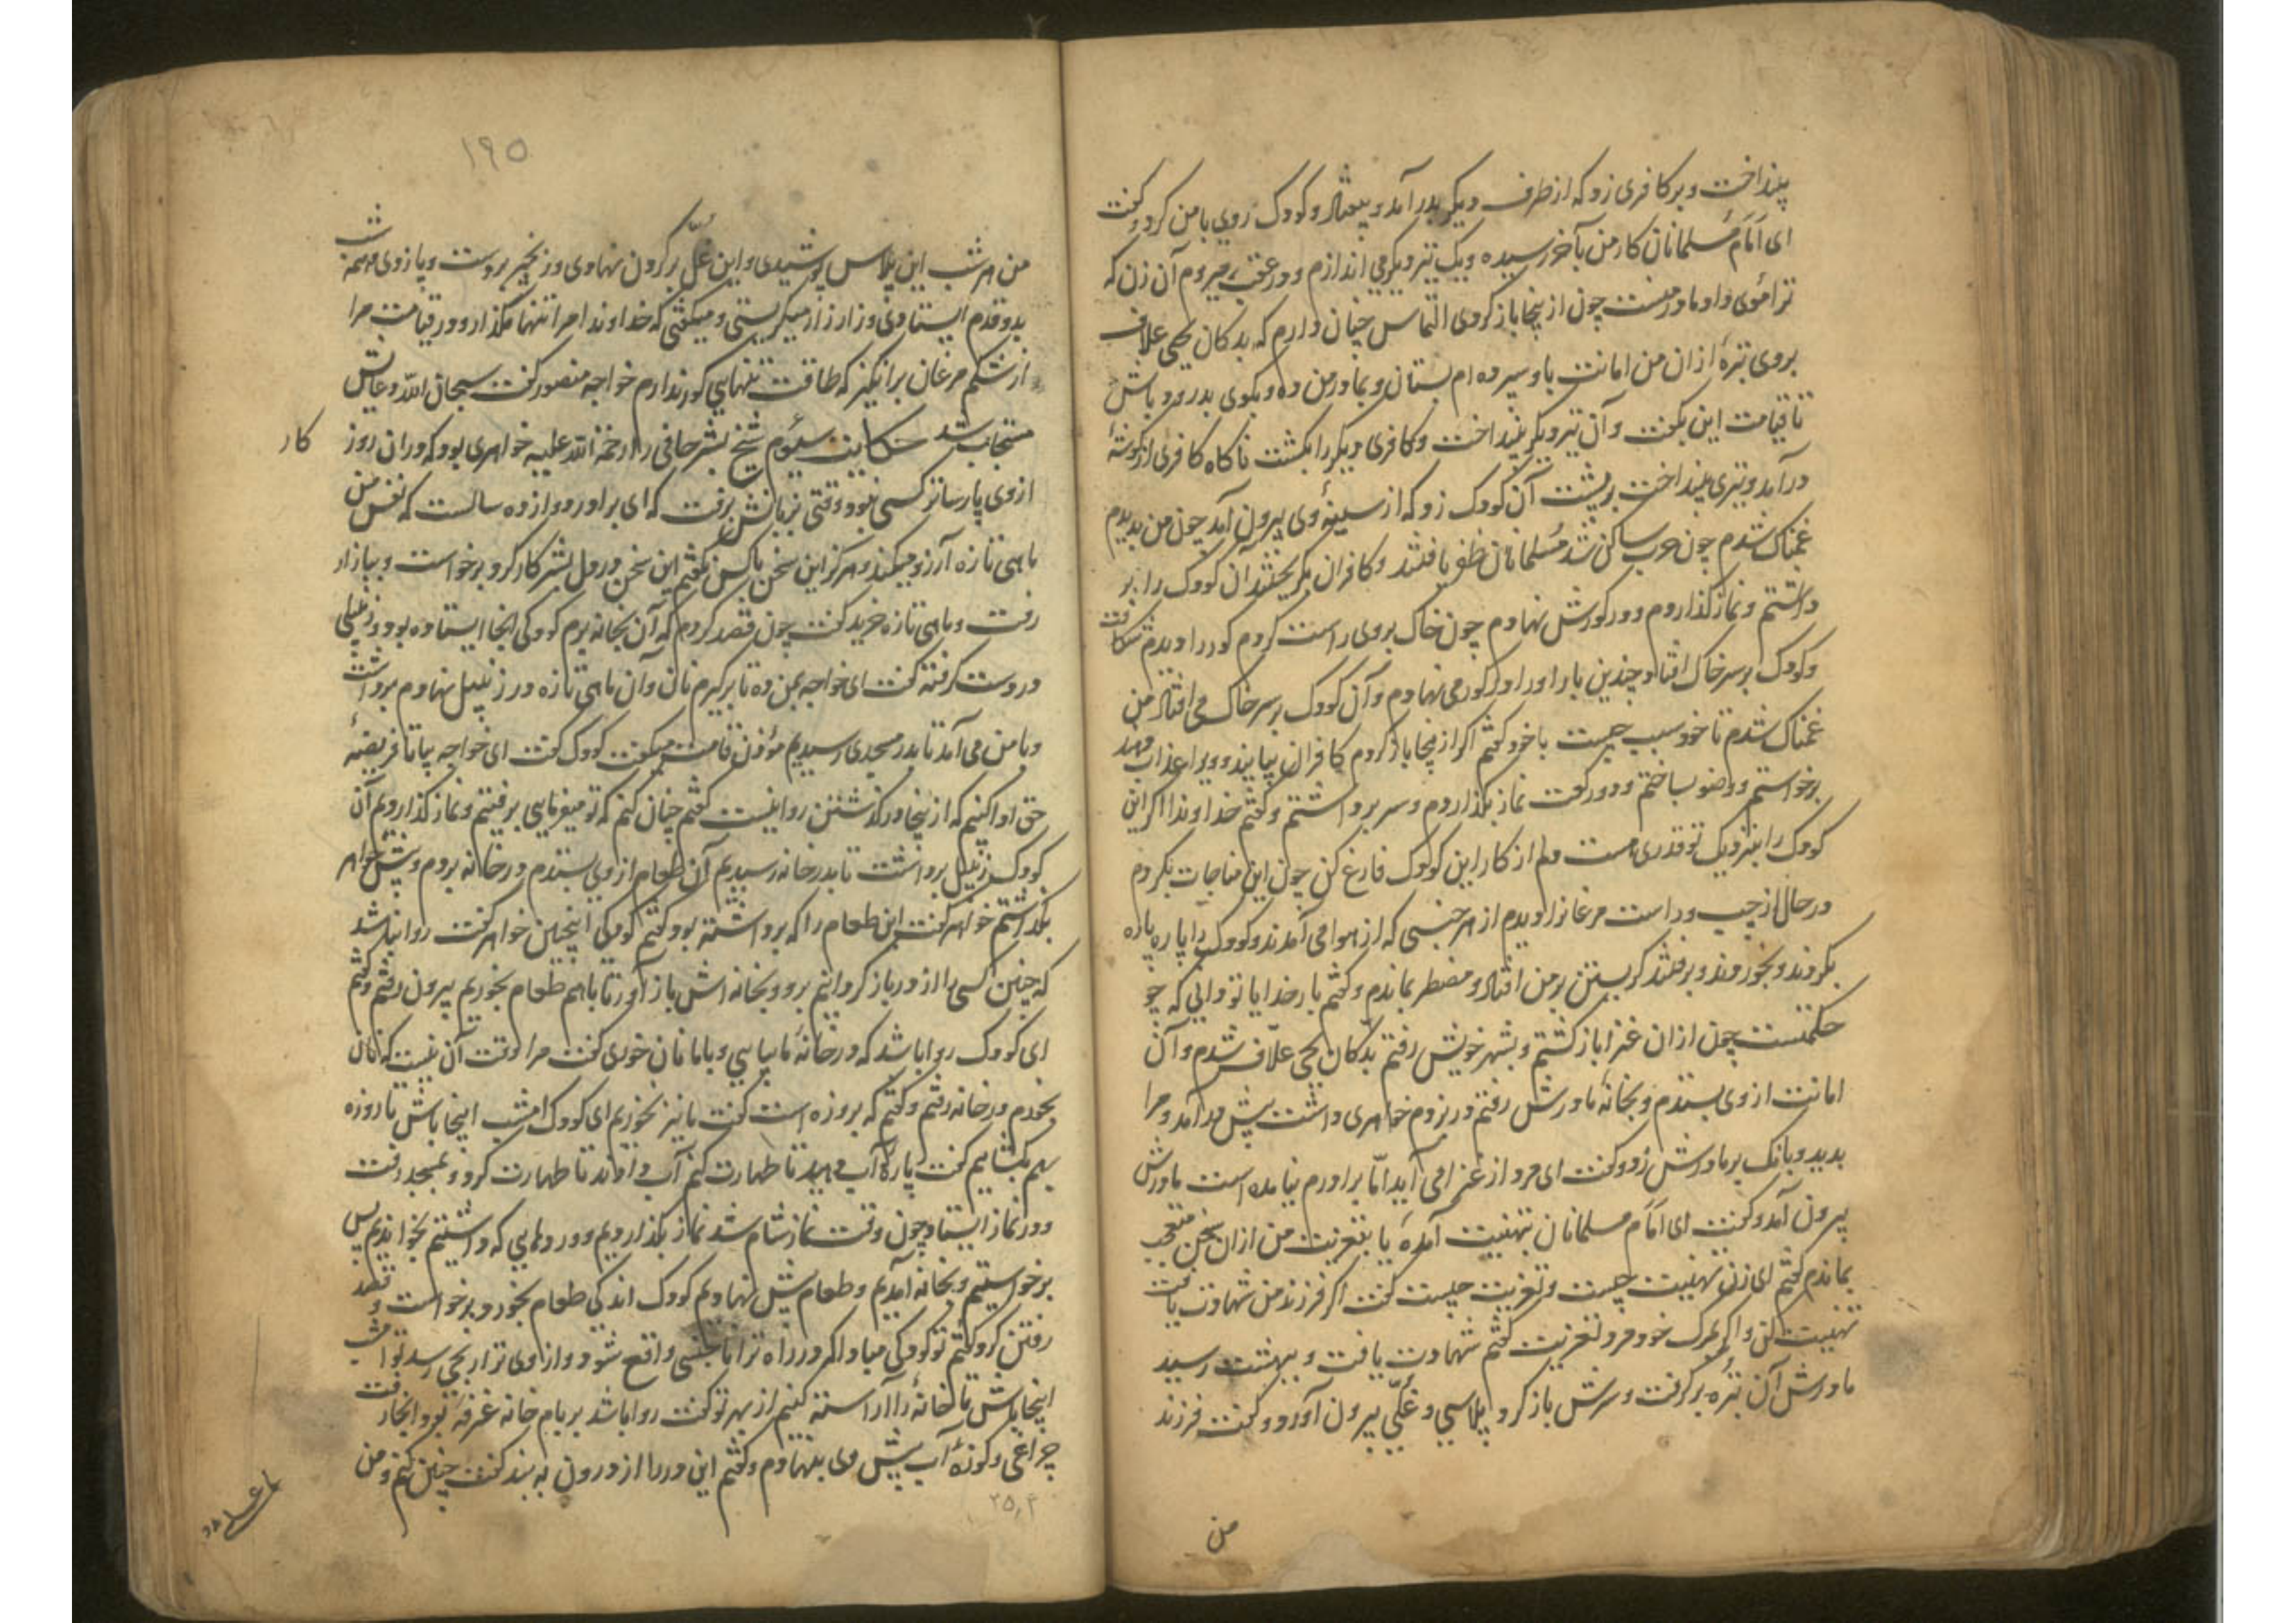 بینداخت و بر کافری زد که از طرف دیگر بدر آمد و بیفتاد و کودک روی بامن کرد و گفت
ای امام مسلمانان کار من بآخر رسیده و یک تیر دیگر می اندازم و در عقب میروم آن زن که
ترا موی داد مادر منست چون از ینجا باز گردی التماس چنان دارم که بدکان یحیی علاف
بروی تبرهٔ ازان من امانت باو سپرده ام بستان و بمادر من ده و بگوی بدرود باش
تا قیامت این بگفت و آن تیر دیگر بینداخت و کافری دیگر را بکشت ناگاه کافری از گوشهٔ
در آمد و تیری بینداخت بر پشت آن کودک زد که از سینهٔ وی بیرون آمد چون من بدیدم
غمناک شدم چون حرب ساکن شد مسلمانان ظفر یافتند و کافران بگریختند آن کودک را بر
داشتم و نماز گذاردم و در گورش نهادم چون خاک بروی راست کردم گور را دیدم شکافت
و کودک بر سر خاک افتاد چندین بار او را در گور می نهادم و آن کودک بر سر خاک می افتاد من
غمناک شدم تا خود سبب چیست با خود گفتم اگر از ینجا باز گردم کافران بیایند و ویرا عذاب دهند
برخواستم و وضو بساختم و دو رکعت نماز بگذاردم و سر برداشتم و گفتم خداوندا اگر این
کودک را بنزدیک تو قدری هست دلم از کار این کودک فارغ کن چون این مناجات بکردم
در حال از چپ و راست مرغانرا دیدم از هر جنسی که از هوا می آمدند و کودک را پاره پاره
بکردند و بخوردند و برفتند گریستن بر من افتاد و مضطر بماندم و گفتم بار خدایا تو دانی که چو
حکمتست چون ازان غزا باز گشتم و بشهر خویش رفتم بدکان یحیی علاف شدم و آن
امانت از وی بستدم و بخانهٔ مادرش رفتم در بزدم خواهری داشت پیش در آمد و مرا
بدید و بانگ بر مادرش زد و گفت ای مرد از غزا می آید اما برادرم نیامده است مادرش
بیرون آمد و گفت ای امام مسلمانان بتهنیت آمدهٔ یا بتعزیت من ازان سخن متعجب
بماندم گفتم ای زن تهنیت چیست و تعزیت چیست گفت اگر فرزند من شهادت یافت
تهنیت کن و اگر بمرگ خود مرد تعزیت گفتم شهادت یافت و ببهشت رسید
مادرش آن تبره بر گرفت و سرش باز کرد پلاسی و غلی بیرون آورد و گفت فرزند
من
۱۹۵
من هر شب این پلاس پوشیدی و این غل بر گردن نهادی و زنجیر بر دست و پا زدی و همه شب
بدو قدم ایستادی و زار زار میگریستی و میگفتی که خداوندا مرا تنها مگذار و در قیامت مرا
از شکم مرغان برانگیز که طاقت تنهایی گور ندارم خواجه منصور گفت سبحان الله دعایش
مستجاب شد حکایت سیوم شیخ بشر حافی را رحمة الله علیه خواهری بود که دران روز کار
از وی پارساتر کسی نبود وقتی بزبانش برفت که ای برادر دوازده سالست که نفس من
ماهی تازه آرزو میکند و هرگز این سخن باکس نگفتم این سخن در دل بشر کار کرد برخواست و ببازار
رفت و ماهی تازه خرید گفت چون قصد کردم که آن بخانه برم کودکی آنجا ایستاده بود و زنبیلی
در دست گرفته گفت ای خواجه بمن ده تا بر گیرم نان و آن ماهی تازه در زنبیل نهادم برداشت
و بامن می آمد تا بدر مسجدی رسیدیم مؤذن قامت میگفت کودک گفت ای خواجه بیا تا فریضهٔ
حق ادا کنیم که از ینجا در گذشتن روا نیست گفتم چنان کنم که تو میفرمایی برفتیم و نماز گذاردیم آن
کودک زنبیل برداشت تا بدر خانه رسیدیم آن طعام از وی بستدم در خانه بردم و پیش خواهر
بگذاشتم خواهر گفت این طعام را که برداشته بود گفتم کودکی اینچنین خواهر گفت روا نباشد
که چنین کسی را از در باز گردانیم برو و بخانه اش باز آور تا باهم طعام بخوریم بیرون رفتم و گفتم
ای کودک روا باشد که در خانهٔ ما بیایی و باما نان خوری گفت مرا وقت آن نیست که نان
بخورم در خانه رفتم و گفتم که بروزه است گفت ما نیز نخوریم ای کودک امشب اینجا باش تا روزه
بهم بگشاییم گفت پارهٔ آب دهید تا طهارت کنم آب دادند تا طهارت کرد و بمسجد رفت
و در نماز ایستاد چون وقت نماز شام شد نماز بگذاردیم و وردهایی که داشتیم بخواندیم پس
برخواستیم و بخانه آمدیم و طعام پیش نهادیم کودک اندکی طعام بخورد و برخواست و قصد
رفتن کرد گفتم تو کودکی مبادا که در راه ترا با جنسی واقع شود و از وی ترا رنجی رسد تو امشب
اینجا باش تا خانهٔ را آراسته کنیم از بهر تو گفت روا باشد بر بام خانه غرفهٔ بود آنجا رفت
چراغی و کوزهٔ آب پیش وی بنهادم و گفتم این در را از درون به بند گفت چنین کنم و من